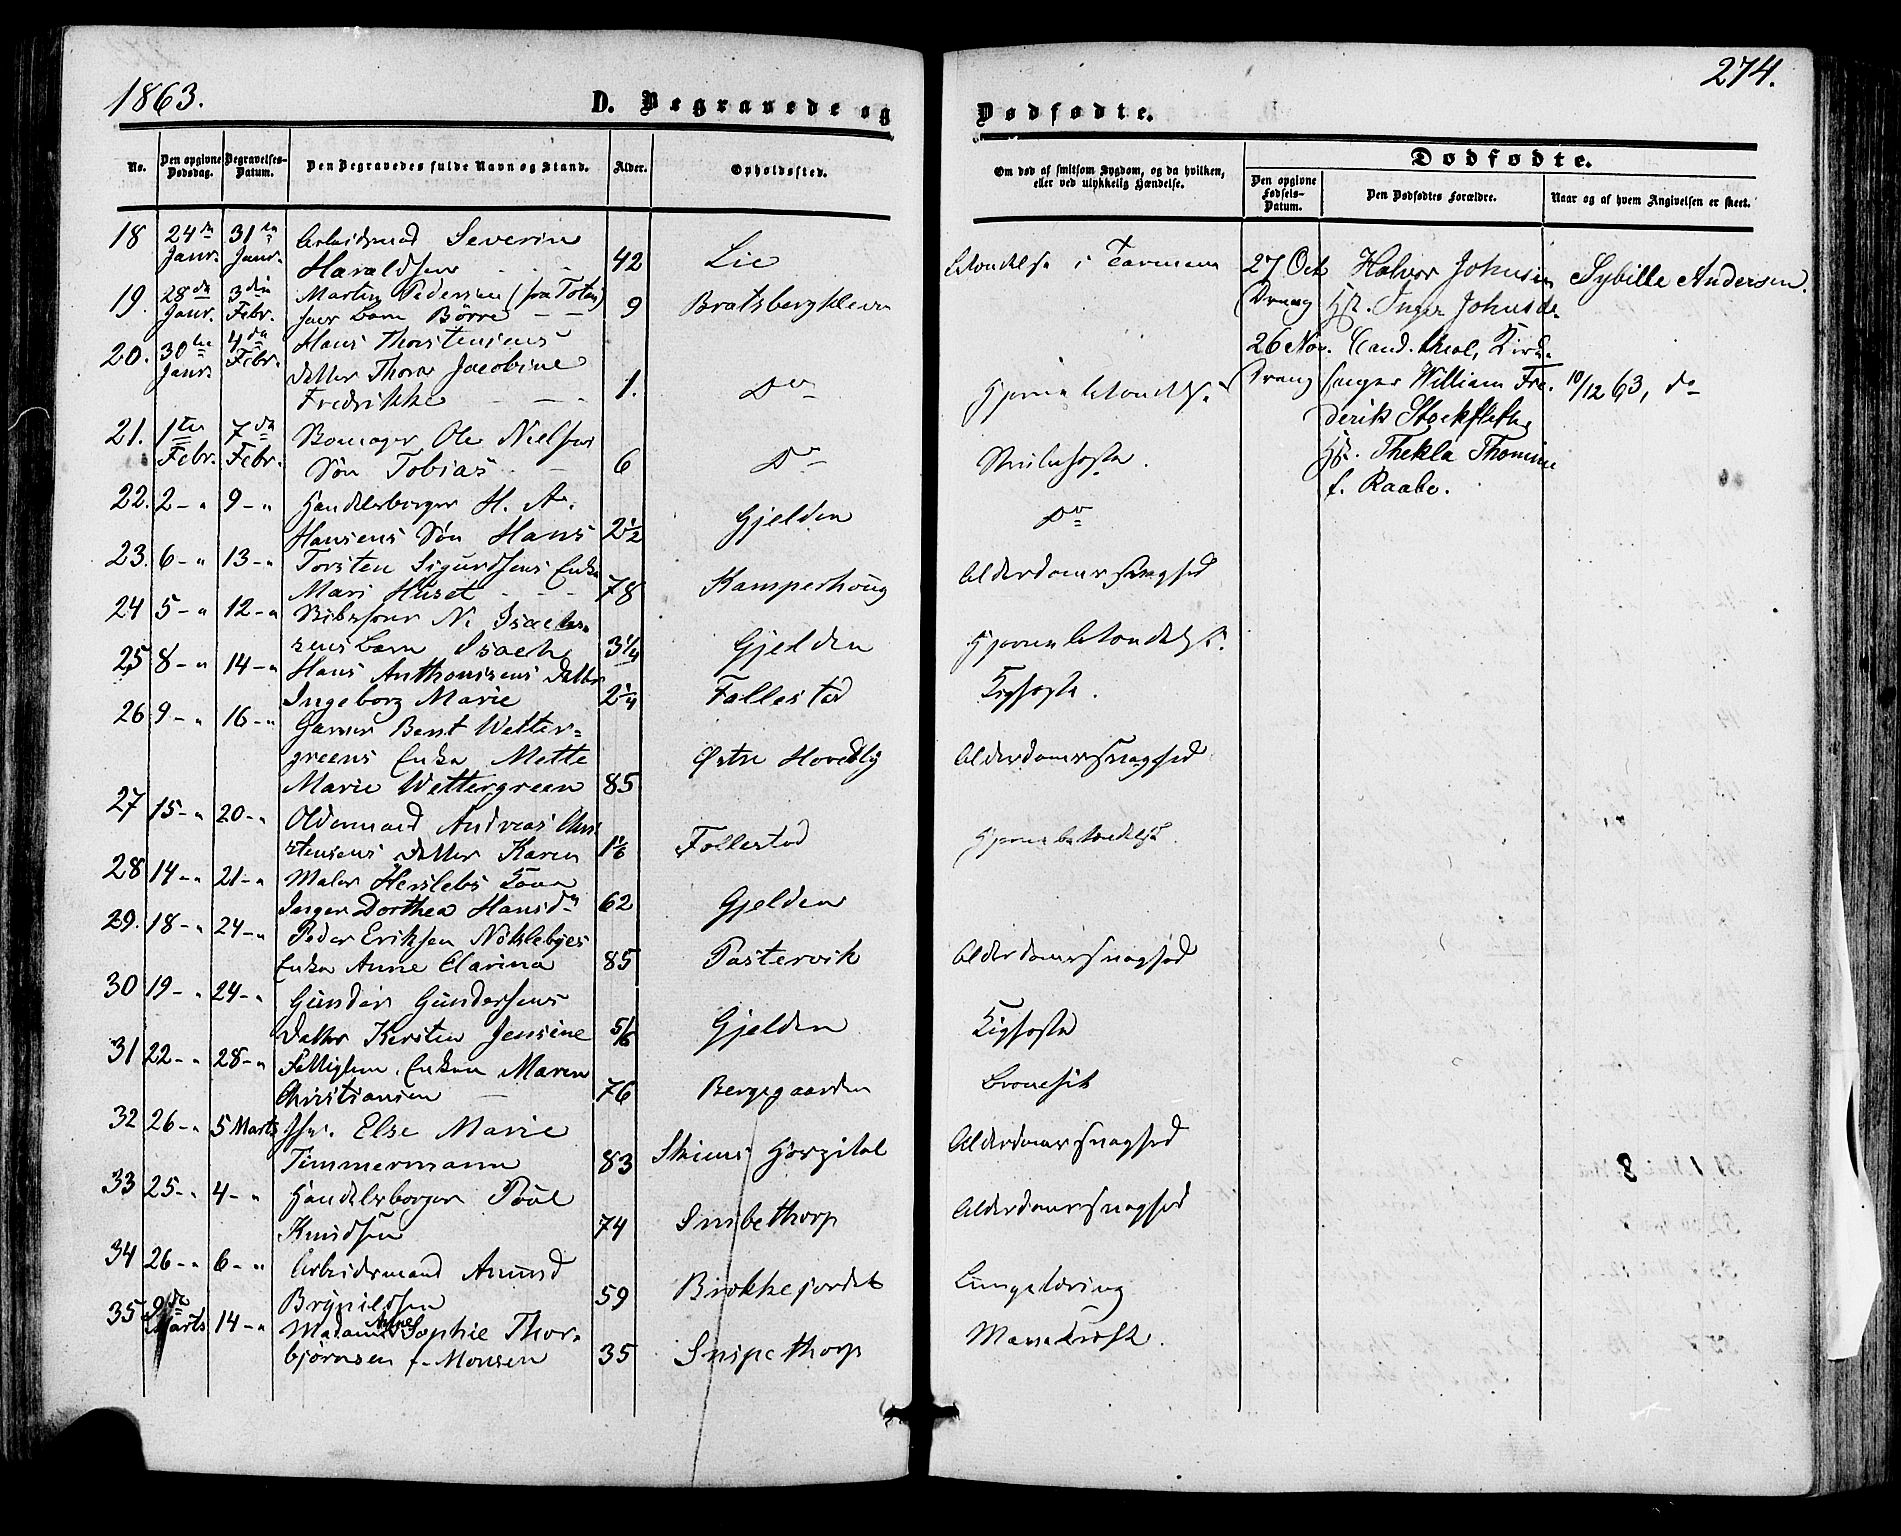 1863.
274.
D. Begravede og
Dødfødte.
No.
Den opgivne Dødsdag.
Begravelses-Datum.
Den Begravedes fulde Navn og Stand.
Alder.
Opholdssted.
Om død af smitsom Sygdom, og da hvilken,
eller ved ulykkelig Hændelse.
Dødfødte.
Den opgivne Fødsels-Datum.
Den Dødfødtes Forældre.
Naar og af hvem Angivelsen er skeet.
18 24de Janr. 31te Janr. Arbeidsmand Severin
Haraldsen 42 Lie Betændelse i Tarmene
19. 28de Janr. 3die Febr. Martin Pedersen (fra Toten)
Barn Børre 9 Bratsbergkleven
20. 30te Janr. 4de Febr. Hans Thorstensens
Datter Thora Jacobine
Fredrikke 1. Do Hjernebetændelse
21. 1ste Febr. 7de Febr. Bomager Ole Nielsens
Søn Tobias 6 Do Strubehoste.
22. 2-" 9-" Handelsborger H. A.
Hansens Søn Hans 2 1/2 Gjelden Do
23. 6-" 13-" Torsten Sigurdsens Enke
Mari Huset 78 Kamperhoug Alderdomssvaghed
24 5-" 12-" N. Isach-
sens barn Isach 3 1/4 Gjelden Hjernebetændelse.
25 8-" 14-" Hans Anthonisens Datter
Ingeborg Marie 2 1/4 Follestad Kighoste.
26 9-" 16-" Garver Bent Wetter-
greens Enke Mette
Marie Wettergreen 85 Østre Hovedlig Alderdomssvaghed
27 15-" 20-" Oldermand Andreas Chri-
stensens Datter Karen 1 1/6 Follestad Hjernebetændelse.
28 14-" 21-" Maler Herslebs Kone
Inger Dorthea Hansdr 62 Gjelden
29. 18-" 24-" Peder Eriksen Nøklebyes
Enke Anne Clarina 85 Pastervik Alderdomssvaghed
30 19-" 24-" Gunder Gundersens
Datter Kirsten Jensine 5/6 Gjelden Kighoste
31 22-" 28-" Fattiglem. Enken Maren
Christiansen 76 Bergegaarden Bronchit
32 26-" 5 Marts Else Marie
Timmermann 83 Skiens Hospital Alderdomssvaghed
33 25-" 4-" Handelsborger Poul
Knudsen 74 Snibethorp Alderdomssvaghed
34 26-" 6-" Arbeidsmand Amund
Brynildsen 59 Brokkejordet Lungetæring
35 9de Marts 14-" Madame Anne Sophie Thor-
bjørnsen f. Monsen 35 Snipethorp Mavekræft.
27 Oct. Dreng
Halvor Johnsen
Hst. Inger Johnsdr.
Sybille Andersen.
26 Nov. Dreng
Cand. theol, Kirke-
sanger William Fre-
derik Stockfleth
Hst. Thekla Thomine
f. Raabe.
10/12 63, do